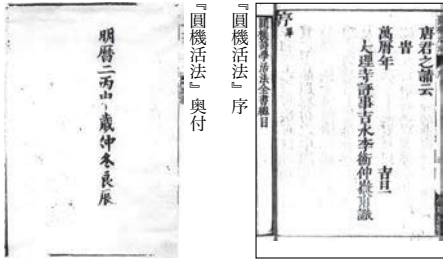 唐君之讀云
旹
萬曆年　吉旦
大理寺評事吉水李衡仲嶽甫識
序畢
圓機詩學活法全書總目
『圓機活法』序
『圓機活法』奥付
明暦二丙申歳仲冬良辰